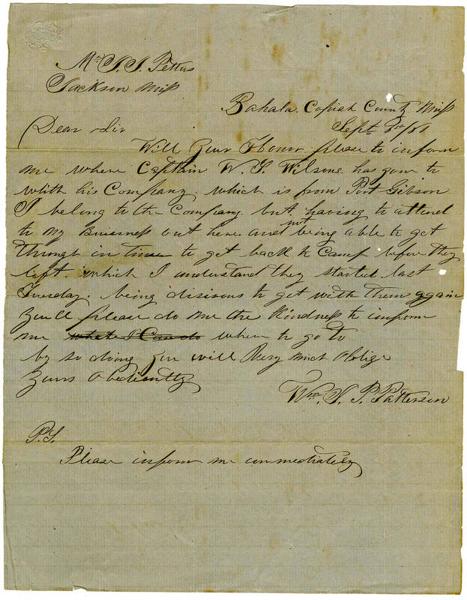 Mr J. J. Pettus
Jackson Miss
Bahala. Copiah County Miss
Sept 9th /61
Dear Sir
Will Your Honor please to inform
me where Captain W. F. Wilsons has gon to
with his Company. which is from Port Gibson
I belong to the Company but having to attend
to my Buisness out here and not being able to get
through in time to get back to Camp before they
left. which I understand they started last
Tuesday. being disirous to get with them again
You'll please do me the kindness to inform
me what I can do where to go to
by so doing you will Very Much Oblige
Yours Obediently
Wm. S. P. Patterson
P.S.
Please inform me immediately